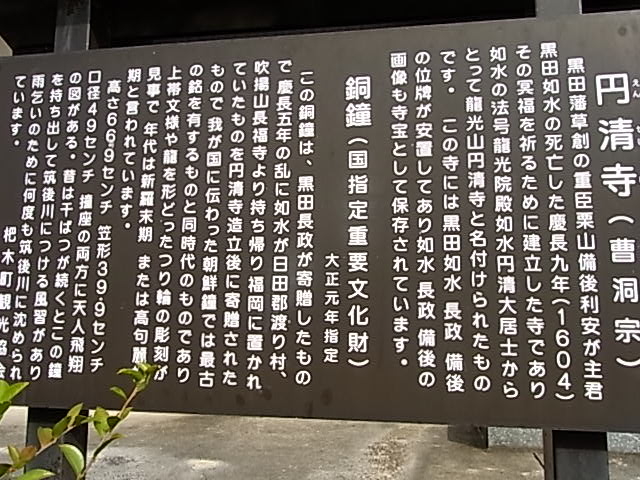 円清寺(曹洞宗)
えん
黒田藩草創の重臣栗山備後利安が主君
黒田如水の死亡した慶長九年(1604)
その冥福を祈るために建立した寺であり
如水の法号龍光院殿如水円清大居士から
とって龍光山円清寺と名付けられたもの
です。 この寺には黒田如水 長政 備後
の位牌が安置してあり如水 長政 備後の
画像も寺宝として保存されています。
銅鐘(国指定重要文化財)
大正元年指定
この銅鐘は、黒田長政が寄贈したもの
で慶長五年の乱に如水が日田郡渡り村、
吹揚山長福寺より持ち帰り福岡に置かれ
ていたものを円清寺造立後に寄贈された
もので我が国に伝わった朝鮮鐘では最古
の銘を有するものと同時代のものであり
上帯文様や龍を形どったつり輪の彫刻が
見事で 年代は新羅末期 または高句麗
期と言われています。
高さ66.9センチ 笠形39.9センチ
口径49センチ 撞座の両方に天人飛翔
の図がある。昔は干ばつが続くとこの鐘
を持ち出して筑後川につける風習があり
雨乞いのために何度も筑後川に沈められ
ています。
杷木町観光協会